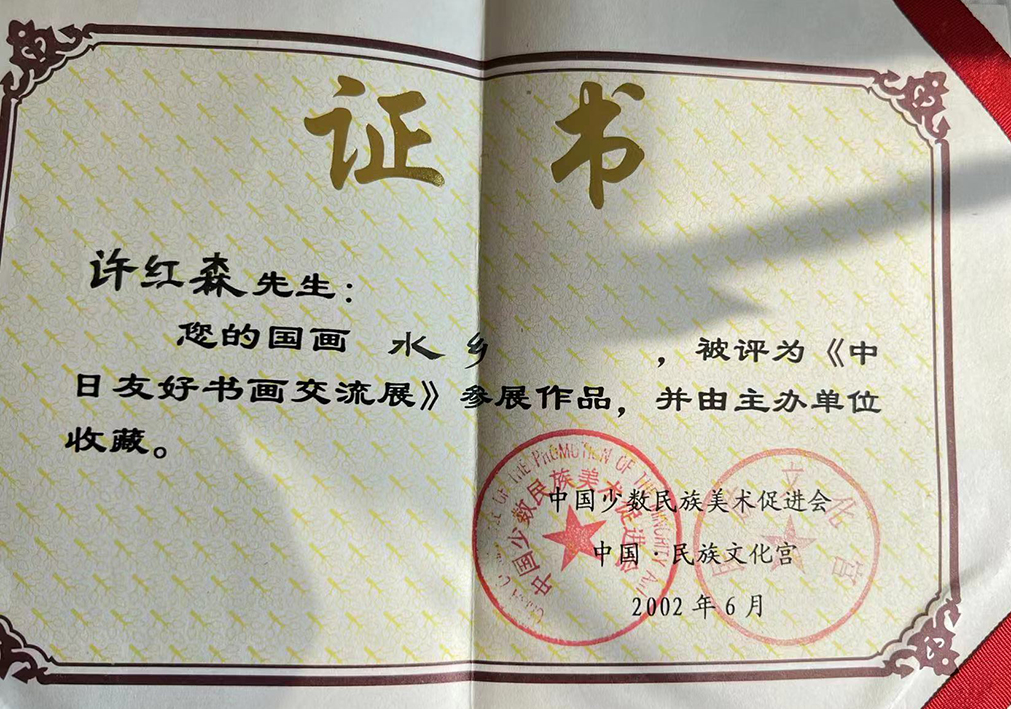 证书
许红森先生：
您的国画 水乡 ，被评为《中
日友好书画交流展》参展作品，并由主办单位
收藏。
中国少数民族美术促进会
中国·民族文化宫
2002年6月
中国少数民族美术促进会
OF THE PROMOTION OF THE MINORITY
文化宫